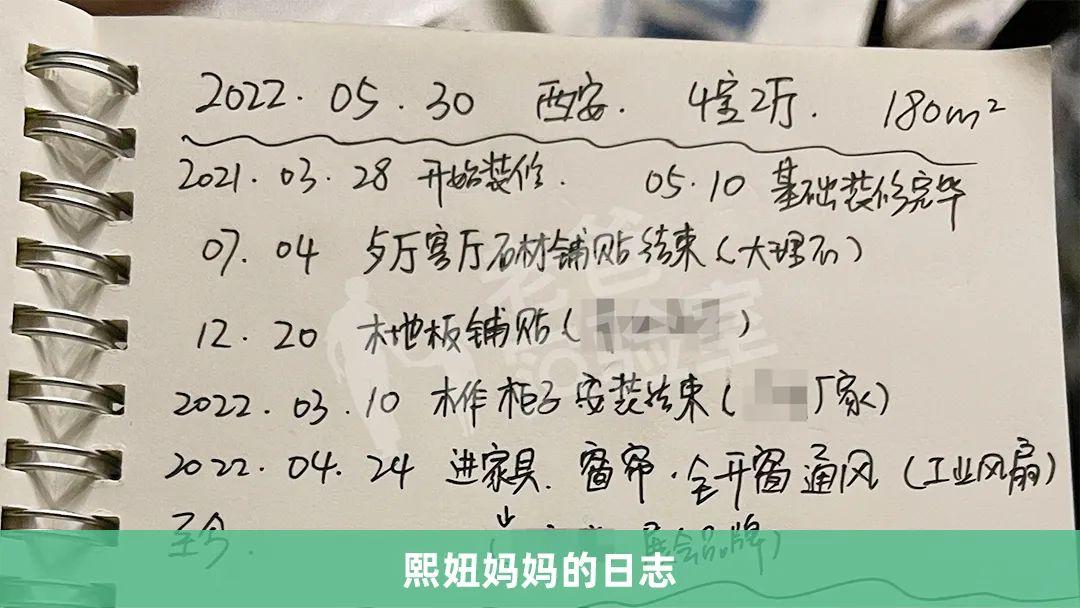 2022.05.30 西安. 4室2厅. 180m²
2021.03.28 开始装修. 05.10 基础装修完毕
07.04 客厅石材铺贴结束(大理石)
12.20 木地板铺贴( )
2022.03.10 木作柜子安装结束( 厂家)
2022.04.24 进家具.窗帘.全开窗通风(工业风扇)
至今. ( 品牌)
老爸实验室
熙妞妈妈的日志